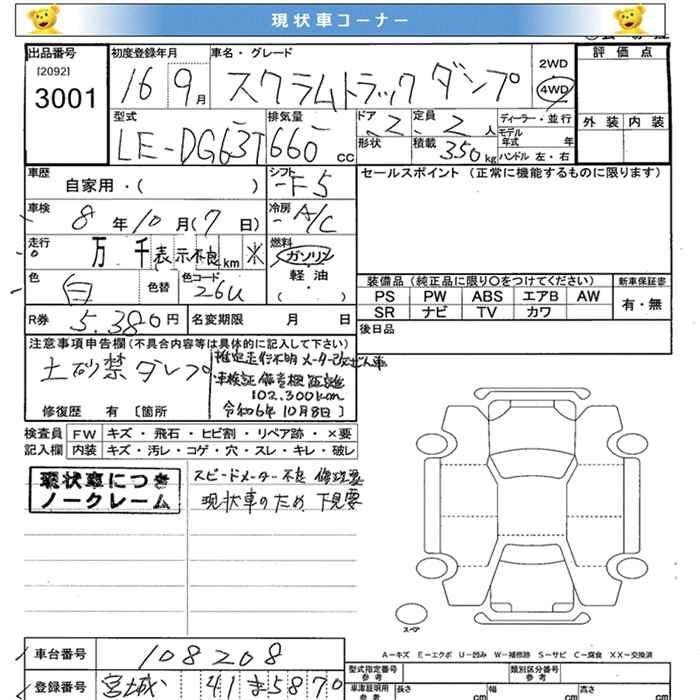 現状車コーナー
出品番号
[2092]
3001
初度登録年月
16 9月
車名・グレード
スクラムトラック ダンプ
2WD
4WD
評価点
外装 内装
型式
LE-DG63T
排気量
660 cc
ドア 2
形状
定員 2 人
積載 350 kg
ディーラー・並行
モデル年式 年
ハンドル 左・右
車歴
自家用・( )
シフト
F5
セールスポイント (正常に機能するものに限ります)
車検
8年10月(7日)
冷房
A/C
走行
万 千 表示不良 km ※
燃料
ガソリン
軽油
( ・ )
色
白
色替
色コード
26U
装備品 (純正品に限り○をつけてください)
PS PW ABS エアB AW
SR ナビ TV カワ
新車保証書
有・無
R券 5.380円
名変期限 月 日
後日品
注意事項申告欄(不具合内容等は具体的に記入して下さい)
土砂禁ダンプ
推定走行不明
車検証備考欄 距離
102,300km
令和6年10月8日)
修復歴 有 〔箇所
検査員
記入欄
FW キズ・飛石・ヒビ割・リペア跡・×要
内装 キズ・汚レ・コゲ・穴・スレ・キレ・破レ
現状車につき
ノークレーム
スピードメーター不良 修理要
現状車のため、下見要
スペア
A-キズ E-エクボ U-凹み W-補修跡 S-サビ C-腐食 XX-交換済
車台番号
108208
登録番号
宮城 41 ま5870
型式指定番号
参考
類別区分番号
参考
車庫証明用
参考
長さ cm
幅 cm
高さ cm